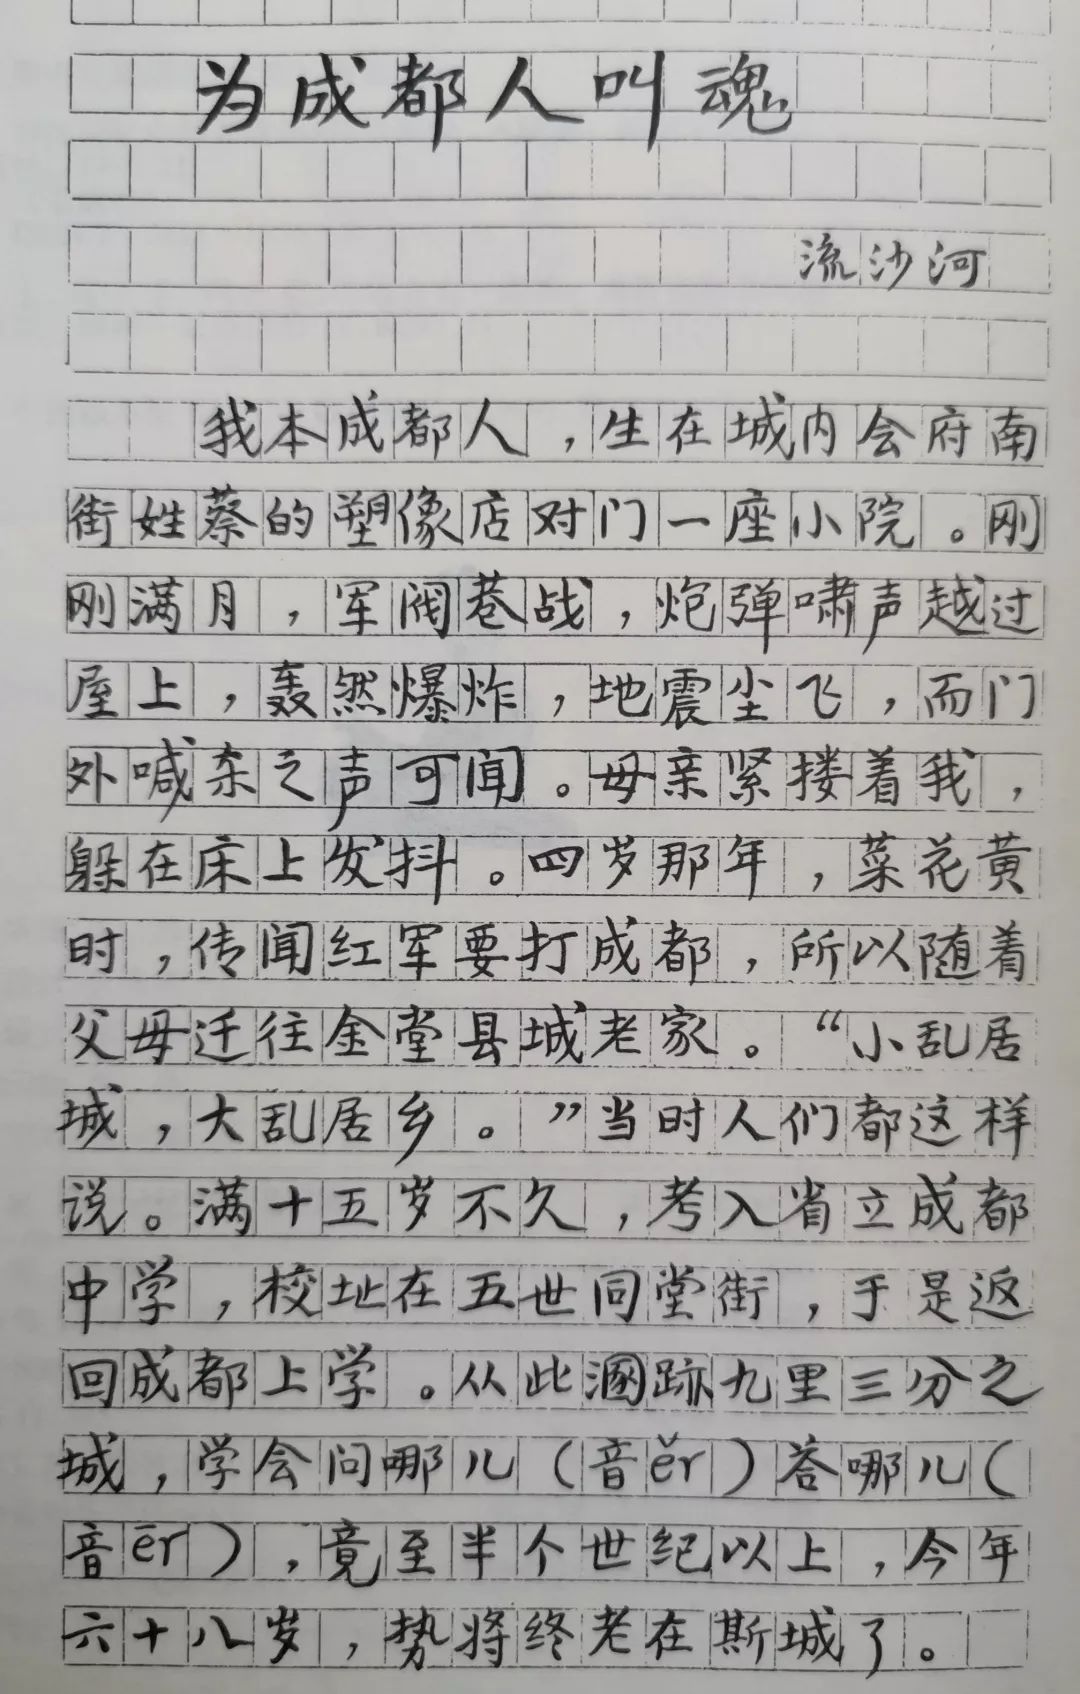 为成都人叫魂
流沙河
我本成都人，生在城内会府南
街姓蔡的塑像店对门一座小院。刚
刚满月，军阀巷战，炮弹啸声越过
屋上，轰然爆炸，地震尘飞，而门
外喊杀之声可闻。母亲紧搂着我，
躲在床上发抖。四岁那年，菜花黄
时，传闻红军要打成都，所以随着
父母迁往金堂县城老家。“小乱居
城，大乱居乡。”当时人们都这样
说。满十五岁不久，考入省立成都
中学，校址在五世同堂街，于是返
回成都上学。从此溷跡九里三分之
城，学会问哪儿（音ěr）答哪儿（
音ēr），竟至半个世纪以上，今年
六十八岁，势将终老在斯城了。